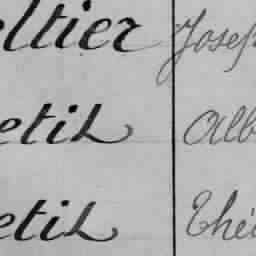 eltier Josep
etit Alb
etit Thé